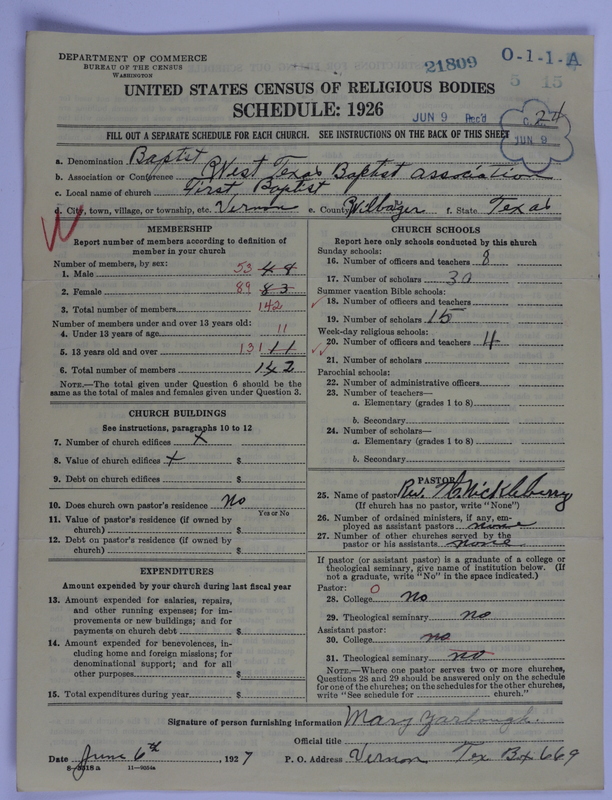 DEPARTMENT OF COMMERCE
BUREAU OF THE CENSUS
WASHINGTON
21809
O-1-1-A
5 15
UNITED STATES CENSUS OF RELIGIOUS BODIES
SCHEDULE: 1926
JUN 9 Rec'd
24
JUN 9
FILL OUT A SEPARATE SCHEDULE FOR EACH CHURCH. SEE INSTRUCTIONS ON THE BACK OF THIS SHEET
a. Denomination Baptist
b. Association or Conference West Texas Baptist association
c. Local name of church First Baptist
d. City, town, village, or township, etc. Vernon e. County Wilbarger f. State Texas
MEMBERSHIP
Report number of members according to definition of
member in your church
Number of members, by sex:
1. Male 53 48
2. Female 89 83
3. Total number of members 142
Number of members under and over 13 years old:
4. Under 13 years of age 11
5. 13 years old and over 131 11
6. Total number of members 142
NOTE.—The total given under Question 6 should be
same as the total of males and females given under Question 3.
CHURCH BUILDINGS
See instructions, paragraphs 10 to 12
7. Number of church edifices x
8. Value of church edifices x $
9. Debt on church edifices $
10. Does church own pastor's residence? no
Yes or No
11. Value of pastor's residence (if owned by
church) $
12. Debt on pastor's residence (if owned by
church) $
EXPENDITURES
Amount expended by your church during last fiscal year
13. Amount expended for salaries, repairs,
and other running expenses; for im-
provements or new buildings; and for
payments on church debt $
14. Amount expended for benevolences, in-
cluding home and foreign missions; for
denominational support; and for all
other purposes $
15. Total expenditures during year $
CHURCH SCHOOLS
Report here only schools conducted by this church
Sunday schools:
16. Number of officers and teachers 8
17. Number of scholars 30
Summer vacation Bible schools:
18. Number of officers and teachers
19. Number of scholars 15
Week-day religious schools:
20. Number of officers and teachers 4
21. Number of scholars
Parochial schools:
22. Number of administrative officers
23. Number of teachers—
a. Elementary (grades 1 to 8)
b. Secondary
24. Number of scholars—
a. Elementary (grades 1 to 8)
b. Secondary
PASTOR
25. Name of pastor Rev. Mickleberry
(If church has no pastor, write "None")
26. Number of ordained ministers, if any, em-
ployed as assistant pastors none
27. Number of other churches served by the
pastor or his assistants none
If pastor (or assistant pastor) is a graduate of a college or
theological seminary, give name of institution below. (If
not a graduate, write "No" in the space indicated.)
Pastor: O
28. College no
29. Theological seminary no
Assistant pastor:
30. College no
31. Theological seminary no
NOTE.—Where one pastor serves two or more churches,
Questions 28 and 29 should be answered only on the schedule
for one of the churches; on the schedules for the other churches,
write "See schedule for church."
Signature of person furnishing information Mary Yarbough.
Official title
Date June 6th, 1927 P. O. Address Vernon Tex Bx 669
8-3318a 11-9054a